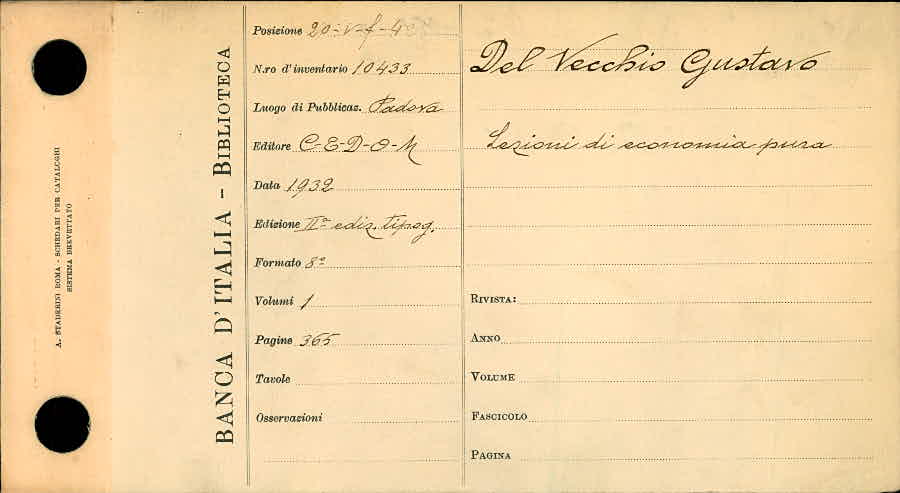 A. STADERINI ROMA - SCHEDARI PER CATALOGHI
SISTEMA BREVETTATO
BANCA D'ITALIA - BIBLIOTECA
Posizione 20-V-f-4
N.ro d'inventario 10433
Luogo di Pubblicaz. Padova
Editore C-E-D-A-M
Data 1932
Edizione IIª ediz. tipog.
Formato 8º
Volumi 1
Pagine 365
Tavole
Osservazioni
Del Vecchio Gustavo
Lezioni di economia pura
RIVISTA:
ANNO
VOLUME
FASCICOLO
PAGINA